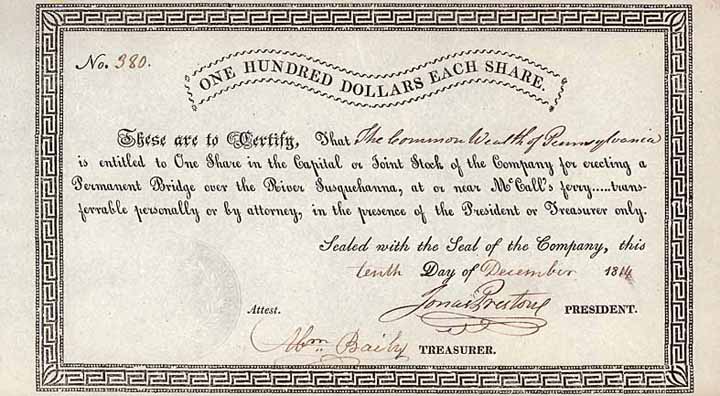 No. 380.
ONE HUNDRED DOLLARS EACH SHARE.
These are to Certify, That The CommonWealth of Pennsylvania
is entitled to One Share in the Capital or Joint Stock of the Company for erecting a
Permanent Bridge over the River Susquehanna, at or near McCall's ferry.....trans-
ferrable personally or by attorney, in the presence of the President or Treasurer only.
Sealed with the Seal of the Company, this
tenth Day of December 1814
Jonas Preston PRESIDENT.
Attest.
Abm Baily TREASURER.